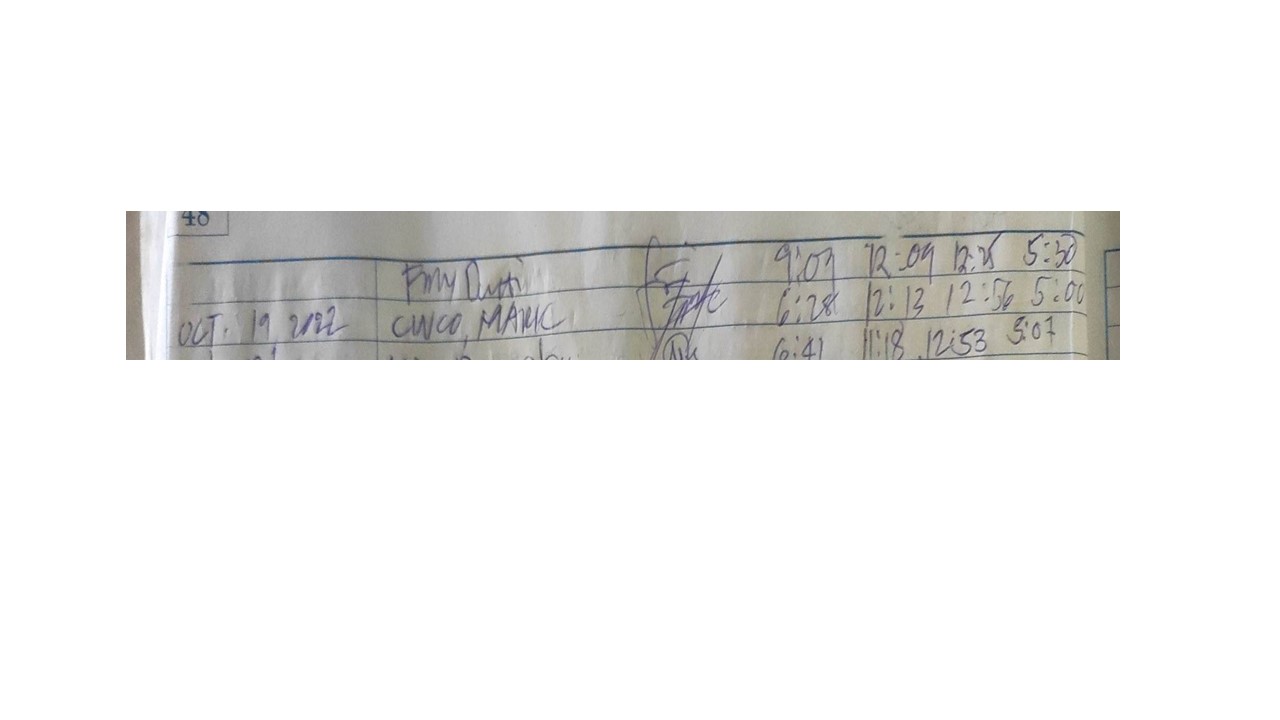 48
9:03 12:09 5:30
OCT. 19, 2022 CINCO, MARK 6:28 12:13 12:56 5:00
6:41 11:18 12:53 5:07